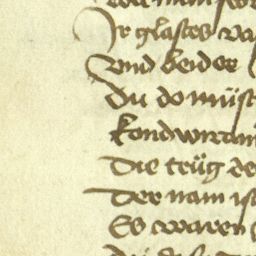 Ir glastes va
Vnd beider
Du do müst
kondwiram
Die trüg de
Der nam ist
Es waren